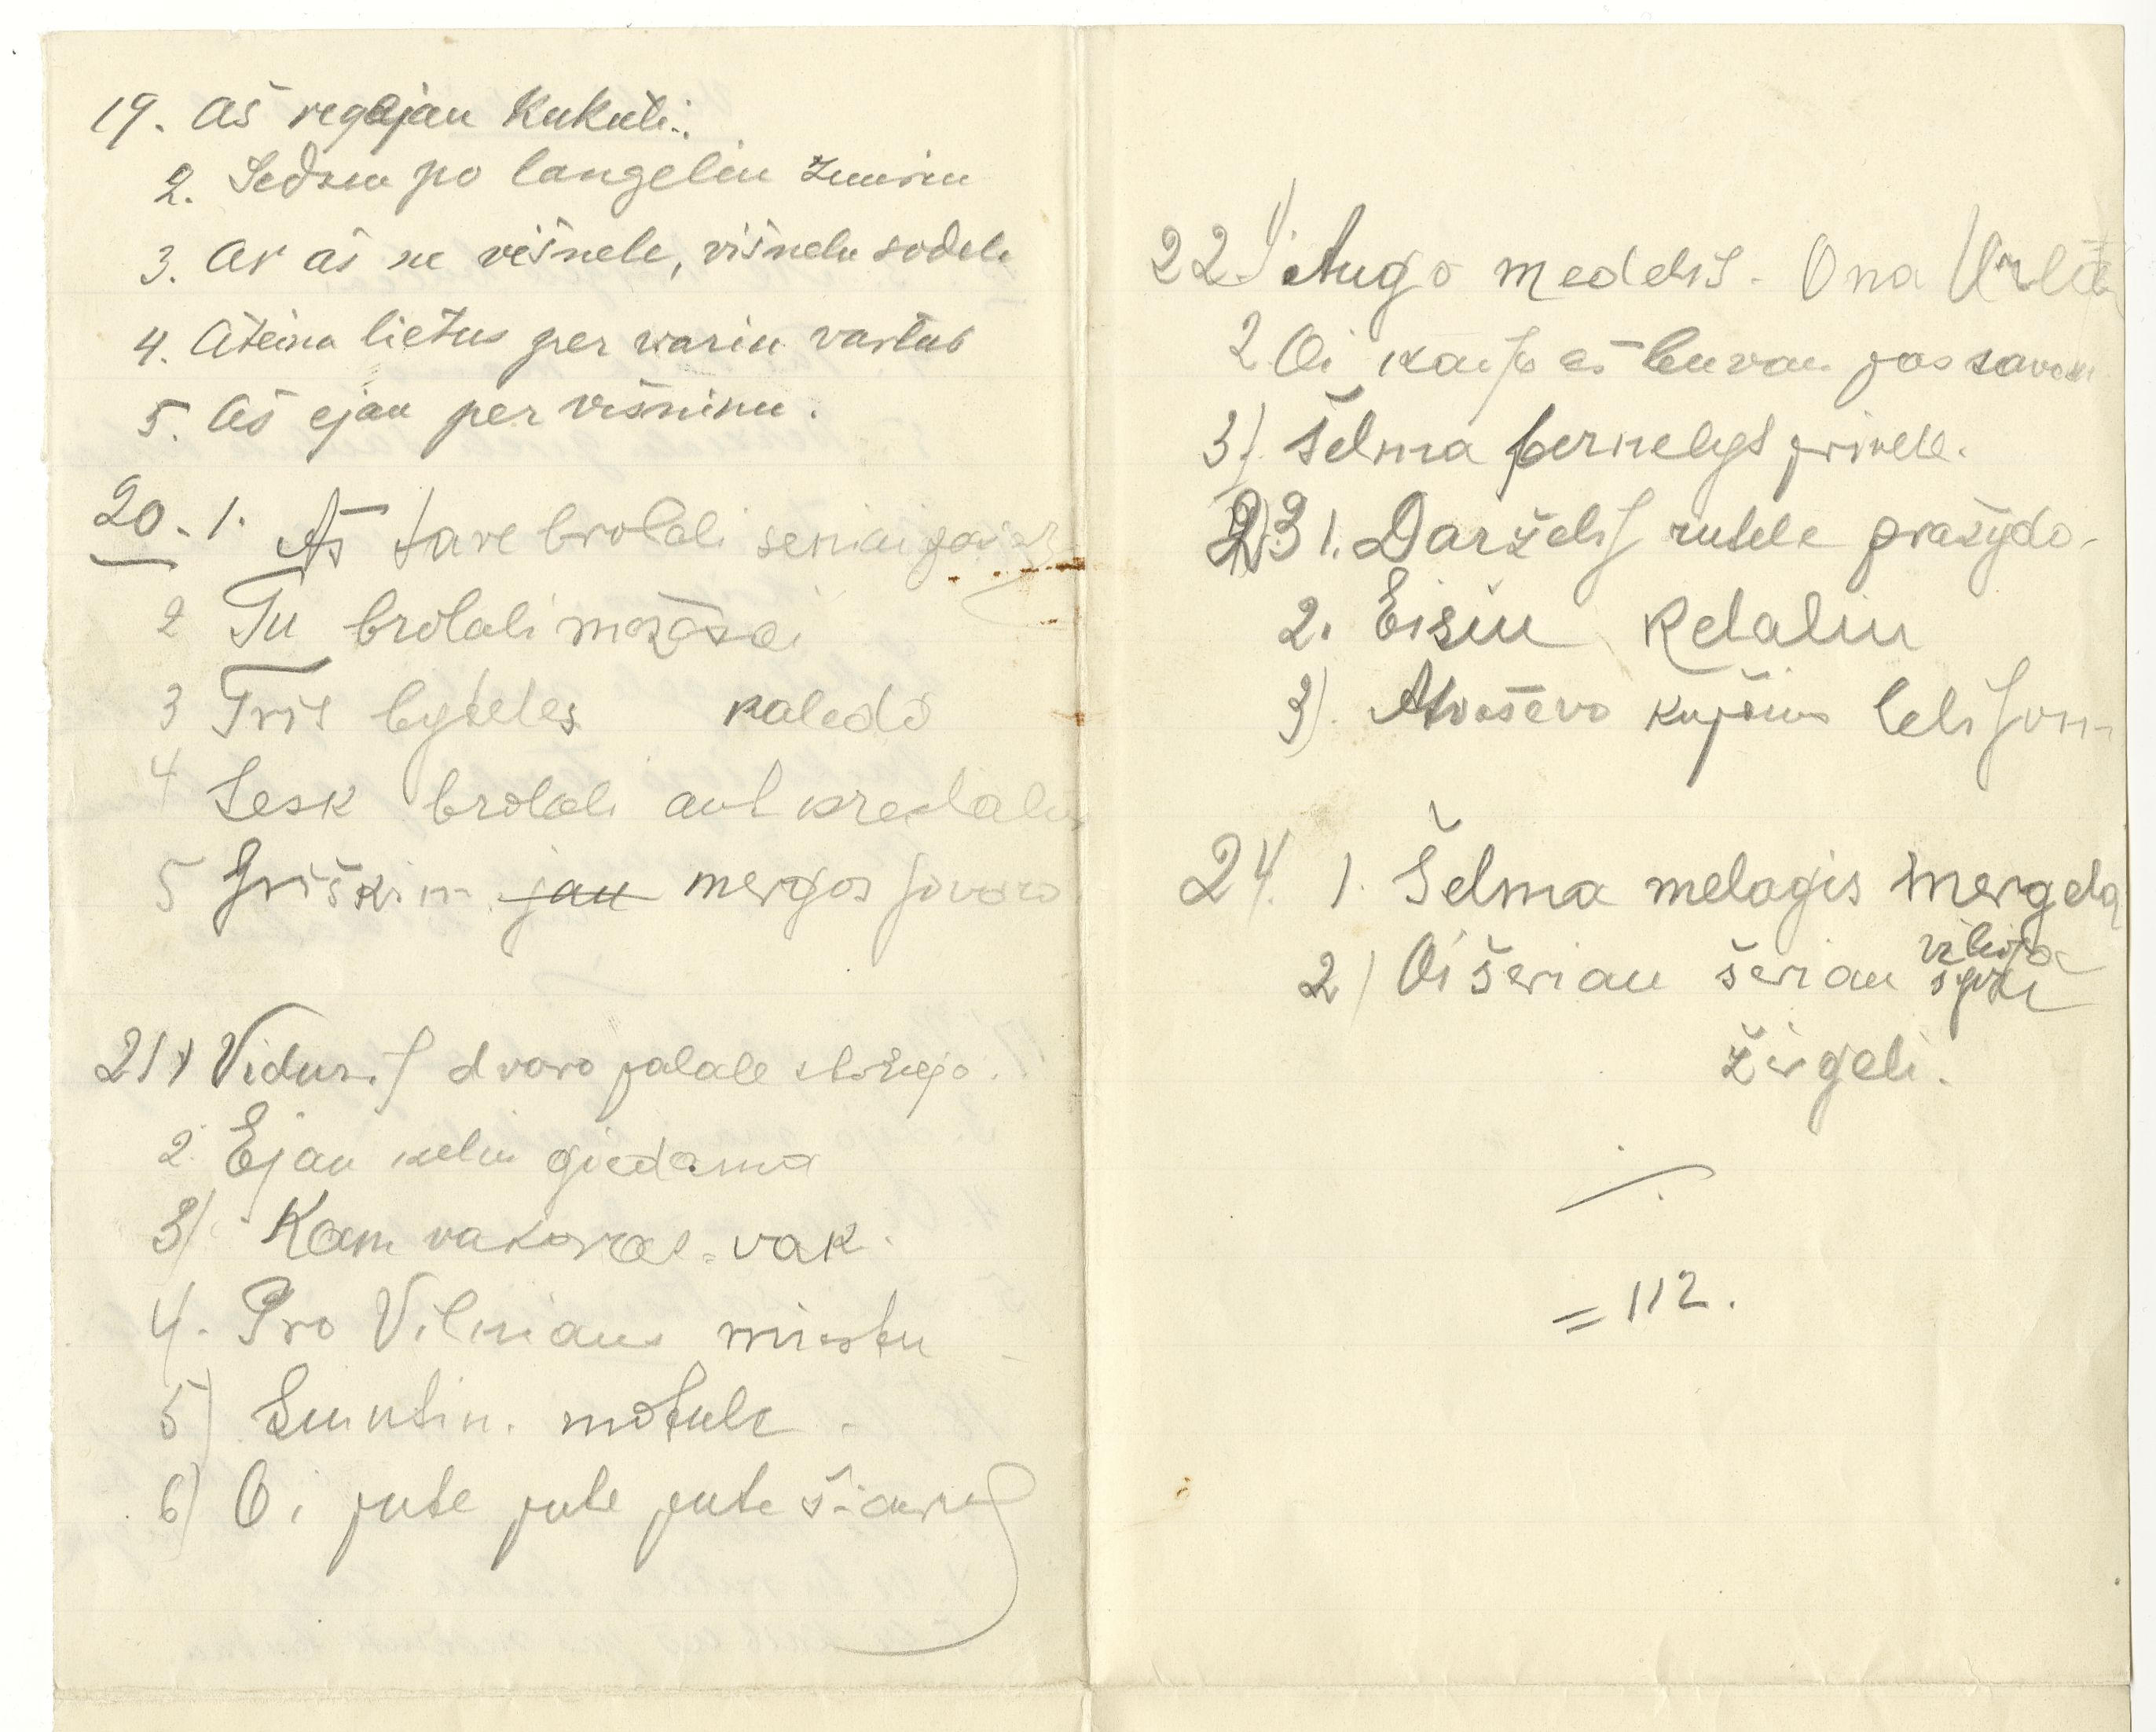 19. Aš regejau Kukuti..
2. Sedziu po langeliu žiuriu
3. Ar aš ne višnele, višneliu sodeli
4. Ateina lietus per variu vartus
5. Aš ejau per višniniu.
20. 1. Aš tave brolali seniai
2 Tu brolali mozosai
3 Tris byteles kaledo
4 Sesk brolali ant krestalu
5 Griškin mergos
21 1) Viduri dvaro palale
2. Ejau keliu giedama
3) Kam vakaras - vak.
4. Pro Vilniaus miestu
5) Siuntin. motule -
6) Oi pute pute pute šiaure
22. 1) Augo medelis. Ona
2 Oi kaip aš buvau pas savo
3) Šelma bernelys privele.
23 1. Darželij rutele pražydo.
2. Eisiu Kelaliu
3). Atvaševo
24. 1. Šelma melagis mergela
2) Oi šeriau šeriau
žirgeli.
= 112.